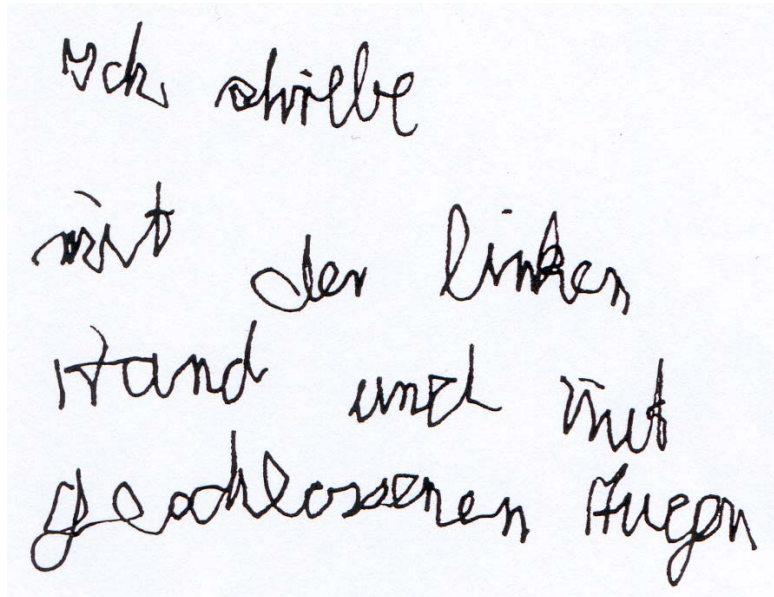 Ich schreibe
mit der linken
Hand und mit
geschlossenen Augen